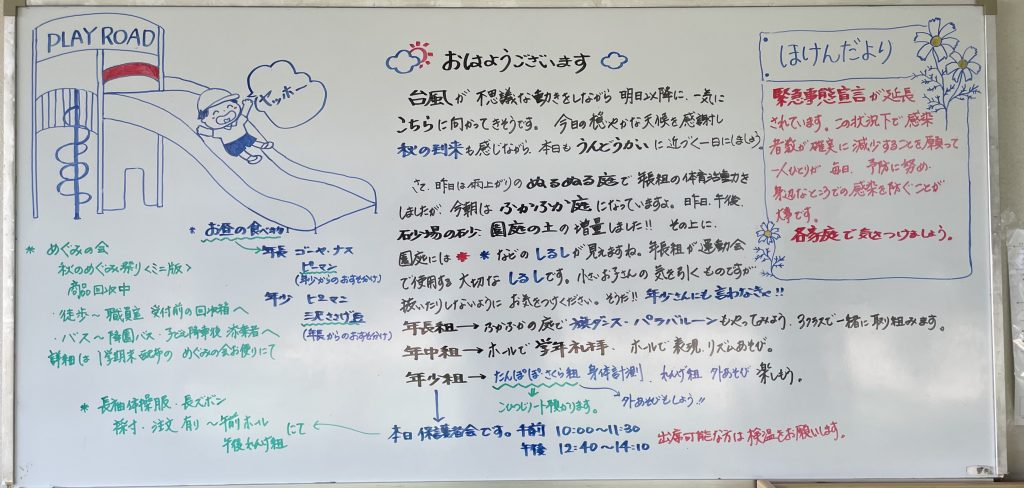 PLAY ROAD
ヤッホー
おはようございます
台風が不思議な動きをしながら 明日以降に、一気に
こちらに向かってきそうです。今日の穏やかな天候を感謝し
秋の到来も感じながら、本日も うんどうかい に近づく一日にしましょう
さて、昨日は雨上がりの ぬるぬる庭で 年長組の体育活動を
しましたが、今朝は ふかふか庭 になっていますよ。昨日、午後、
砂場の砂、園庭の土の増量しました!! その上に、
園庭には * * などの しるしが見えますね。年長組が運動会
で使用する 大切な しるしです。小さいお子さんの気を引くものですが
抜いたりしないように お気をつけください。そうだ!! 年少さんにも言わなきゃ!!
年長組→ふかふかの庭で 旗ダンス・パラバルーンもやってみよう。3クラスで一緒に取り組みます。
年中組→ホールで 学年礼拝、ホールで 表現、リズムあそび。
年少組→たんぽぽ さくら組 身体計測、れんげ組 外あそび 楽しもう。
こひつじノート預かります。
外あそびもしよう!!
本日 保護者会です。午前 10:00〜11:30
午後 12:40〜14:10
出席可能な方は 検温をお願いします。
ほけんだより
緊急事態宣言が延長
されています。この状況下で感染
者数が確実に減少することを願って
一人ひとりが 毎日、予防に努め、
身近なところでの感染を防ぐことが
大事です。
各家庭で気をつけましょう。
* お昼の食べ物
年長 ゴーヤ・ナス
ピーマン
(年少からのおすそ分け)
年少 ピーマン
三尺ささげ豆
(年長からのおすそ分け)
* めぐみの会
秋のめぐみ祭り<ミニ版>
商品回収中
・徒歩〜職員室 受付前の回収箱へ
・バス〜降園バス・子ども降車後 添乗者へ
詳細は 1学期末配布の めぐみの会お便りにて
* 長袖体操服・長ズボン
採寸・注文有り〜午前ホール
午後れんげ組
にて